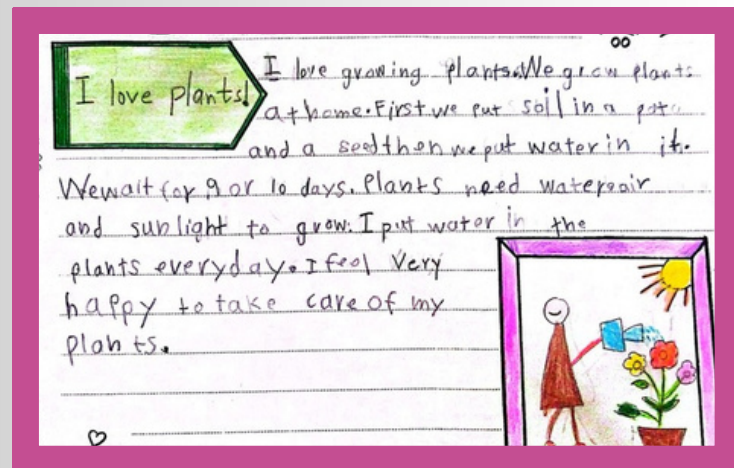 I love plants!
I love growing plants. We grow plants
at home. First we put soil in a pot
and a seed then we put water in it.
We wait for 9 or 10 days. Plants need water, air
and sunlight to grow. I put water in the
plants everyday. I feel very
happy to take care of my
plants.